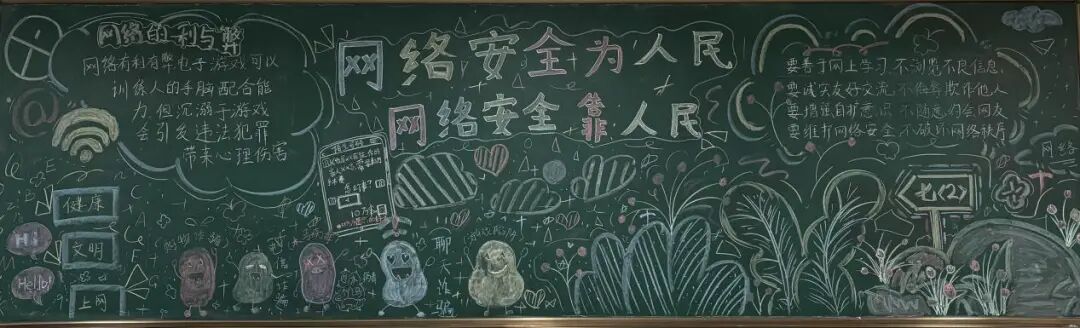 网络的利与弊
网络有利有弊电子游戏可以
训练人的手脑配合能
力但沉溺于游戏
会引发违法犯罪
带来心理伤害
网络安全为人民
网络安全靠人民
要善于网上学习 不浏览不良信息
要诚实友好交流 不侮辱欺诈他人
要增强自护意识 不随意约会网友
要维护网络安全 不破坏网络秩序
网络
@
健康
文明
上网
Hi
Hello!
聊天诈骗
七(2)